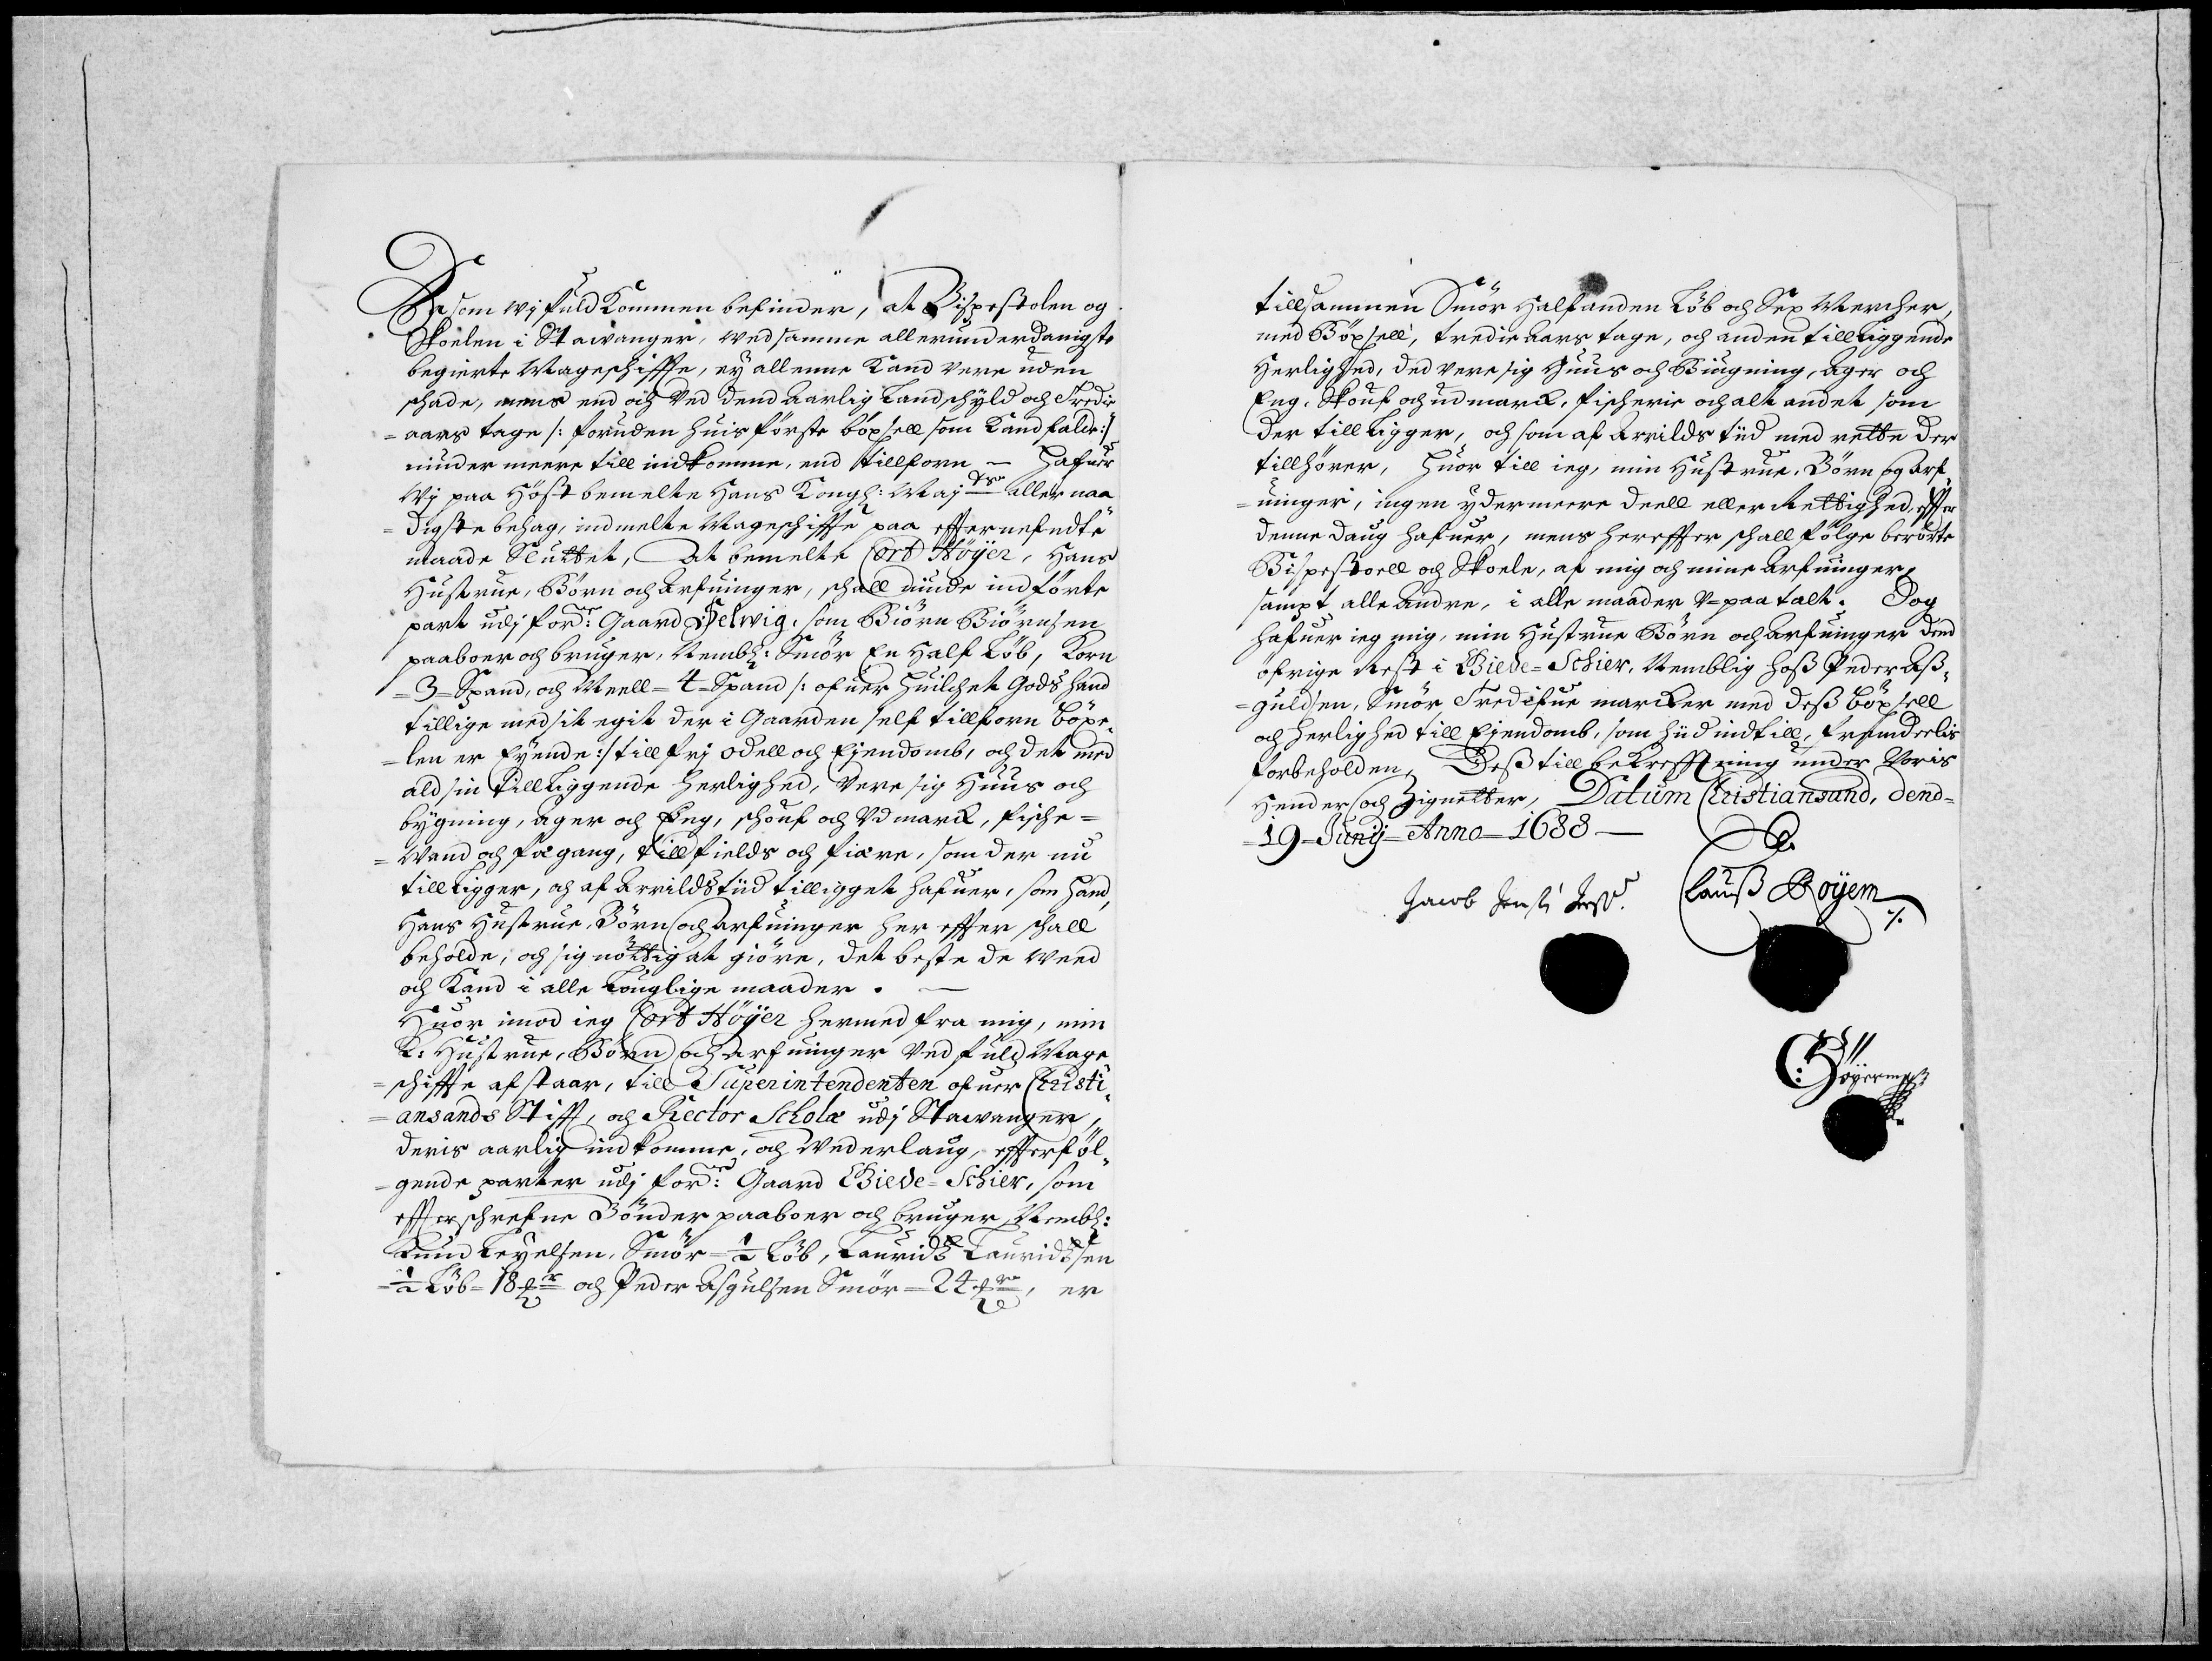 Da som wj fuldkommen befinder, at Bispestolen og
Skoelen i Stawanger, wed samme allerunderdanigste
begierte Mageschiffte, ey allenne kand vere uden
schade, mens end och ved dend aarlig Landschyld och Tredie
=aars tage /: foruden huis förste böxsell som kand falde :/
niuder meere till indkomme, end tillforn — hafuer
Wj paa höst bemelte Hans Kongl: Maj:ts aller naa
=digste behag, indmelte Mageschiffte paa effternefndte
maade Sluttet, At bemelte Cort Höyer, Hans
Hustrue, Börn och Arfuinger, schall niude indförte
part udj for:de Gaard Helwig, som Biörn Biörnsen
paaboer och bruger, Nembl: Smör En Half Löb, Korn
=3= Spand, och Meell =4= Spand /: ofuer huilchet Gods hand
tillige med sit egit der i Gaarden self tillforn böxe
=len er Eyende :/ till frj odell och Ejendomb, och det med
ald sin tillliggende herlighed, vere sig Huus och
bygning, ager och Eng, schouf och Udmark, fische=
=Wand och fægang, till fields och fiære, som der nu
tilligger, och af Arrilds tiid tilligget hafuer, som hand,
Hans Hustrue, Börn och Arfuinger her effter schall
beholde, och sig nöttig at giöre, det beste de weed
och kand i alle Louglige maader. —
Huor imod ieg Cort Höyer hermed fra mig, min
K: Hustrue, Börn och Arfuinger ved fuld Mage
=schiffte afstaar, till Superintendenten ofuer Christi
=ansands Stifft, och Rector Scholæ udj Stawanger,
deris aarlig indkomme, och Wederlaug, effterföl
=gende parter udj for:de Gaard Giede=Schier, som
effterschrefne Bönder paaboer och bruger, Nembl:
Knud Teyelsen, Smör =½ Löb, Laurids Lauridssen
=½ Löb= 18 och Peder Asgulsen Smör =24, er
tillsammen Smör halfanden Löb och Sex Mercher,
med Böxsell, tredie Aars tage, och anden tillliggende
Herlighed, ded vere sig Huus och Biugning, ager och
Eng, Skouf och udmark, fischerie och alt andet som
der tilligger, och som af Arrilds tiid med rette der
tillhörer, huor till ieg, min Hustrue, Börn og Arf
=uinger, ingen ydermeere deell eller Rettighed, effter
denne daug hafuer, mens hereffter schall fölge berörte
Bispestoell och Skoele, af mig och mine Arfuinger,
sampt alle andre, i alle maader V=paatalt. Dog
hafuer ieg mig, min Hustrue Börn och Arfuinger dend
öfrige Rest i Giede=Schier, Nemblig hoß Peder Aß
=guldsen, Smör Tredifue marcker med deß böxsell
och herlighed till Ejendomb, som hiid indtill, fremdeelis
forbeholden, Deß till bekrefftning under Voris
Hender och Zignetter, Datum Christiansand, dend=
=19= Junij= Anno= 1688 —
Jacob Jenß
Clauß Boyem
C: Höyer